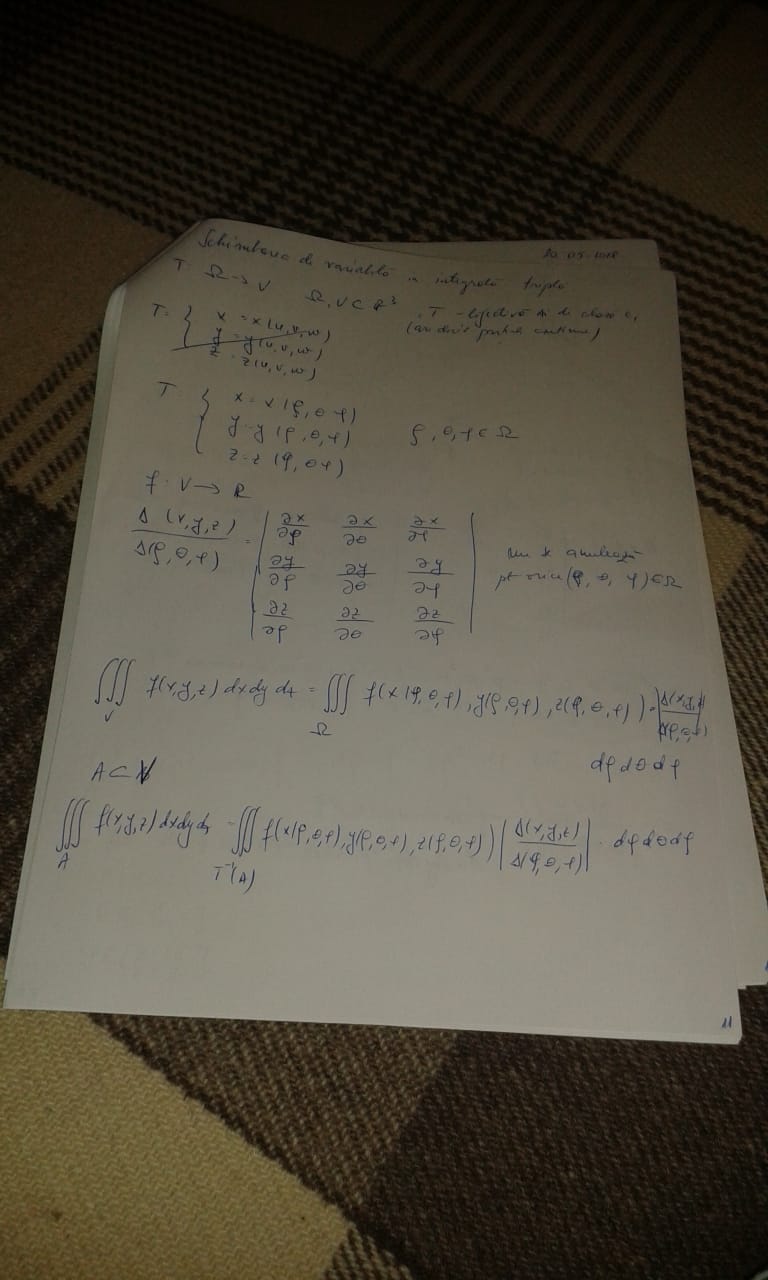 20.05.2018
Schimbarea de variabilă în integrala triplă
T: Ω → V Ω, V ⊂ R³ , T - bijectivă și de clasă C₁
(au deriv parțiale continue)
T: { x = x(u, v, w)
y = y(u, v, w)
z = z(u, v, w)
T: { x = x(ρ, θ, φ)
y = y(ρ, θ, φ) ρ, θ, φ ∈ Ω
z = z(ρ, θ, φ)
f: V → R
Δ(x,y,z) / Δ(ρ,θ,φ) = | ∂x/∂ρ ∂x/∂θ ∂x/∂φ |
| ∂y/∂ρ ∂y/∂θ ∂y/∂φ | nu se anulează
| ∂z/∂ρ ∂z/∂θ ∂z/∂φ | pt orice (ρ, θ, φ) ∈ Ω
∭_V f(x,y,z) dx dy dz = ∭_Ω f(x(ρ,θ,φ), y(ρ,θ,φ), z(ρ,θ,φ)) · |Δ(x,y,z) / Δ(ρ,θ,φ)|
dρ dθ dφ
A ⊂ V
∭_A f(x,y,z) dx dy dz = ∭_T⁻¹(A) f(x(ρ,θ,φ), y(ρ,θ,φ), z(ρ,θ,φ)) |Δ(x,y,z) / Δ(ρ,θ,φ)| · dρ dθ dφ
11